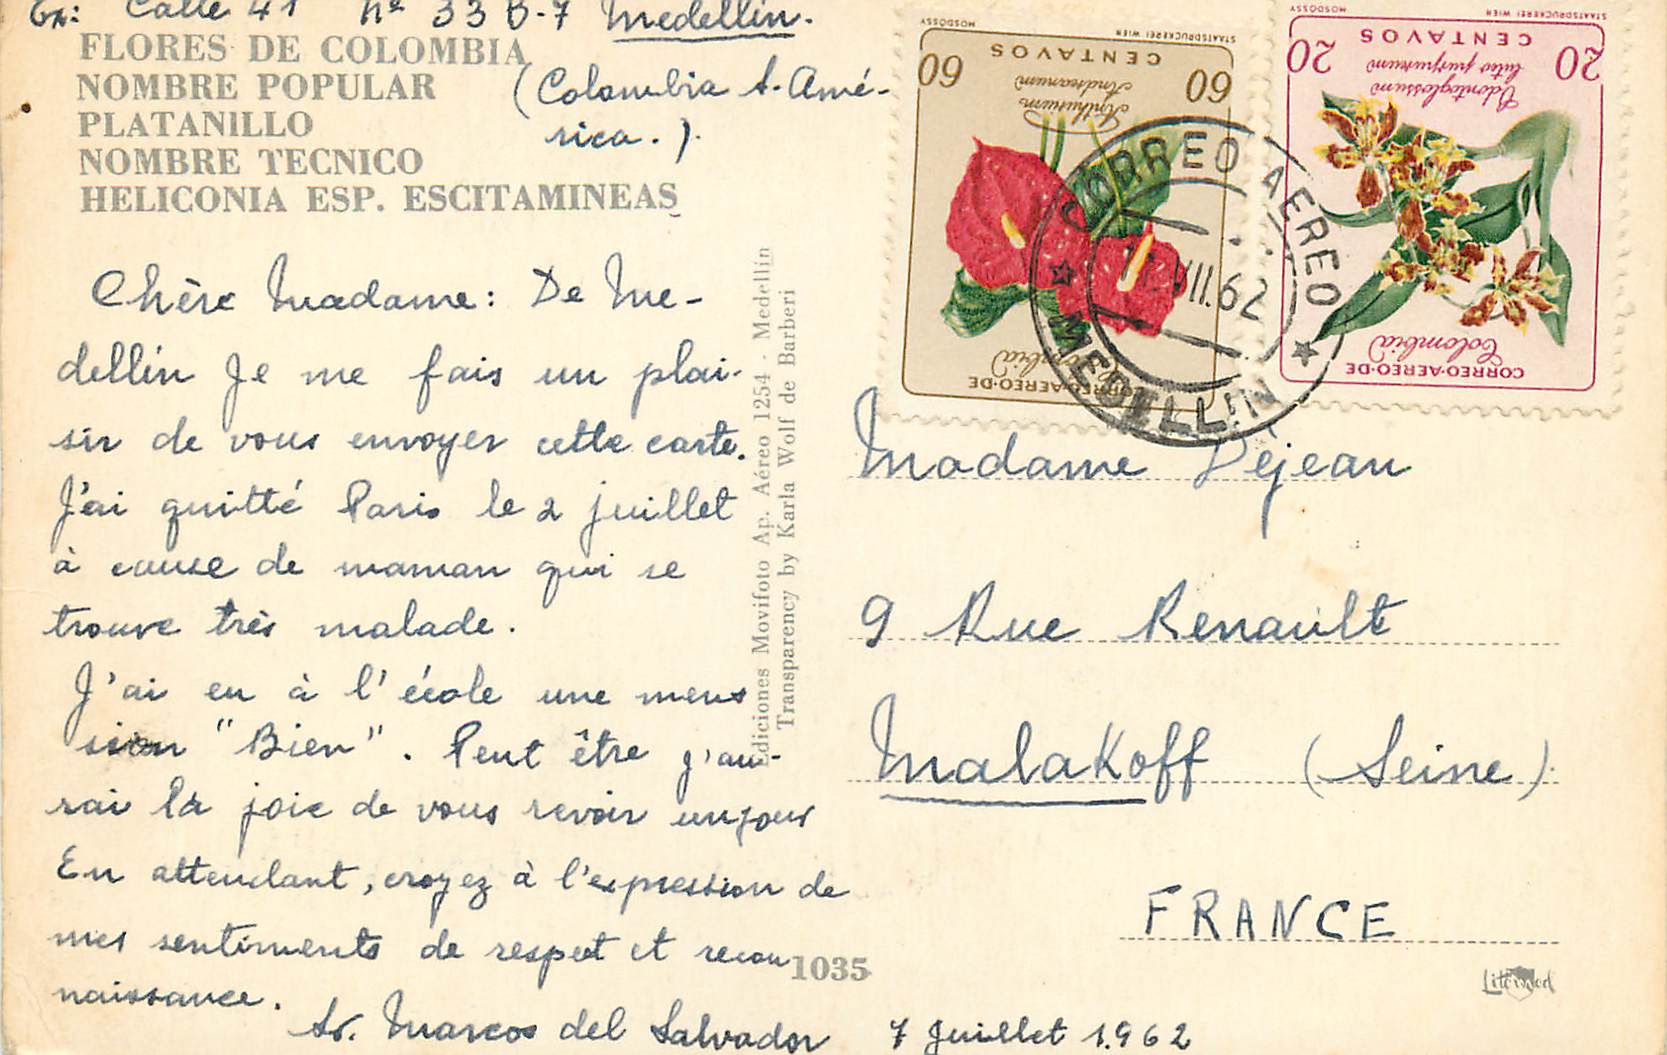 Ex: Calle 41 Nº 33 B-7 Medellín.
(Colombia S. Amé-
rica.).
FLORES DE COLOMBIA
NOMBRE POPULAR
PLATANILLO
NOMBRE TECNICO
HELICONIA ESP. ESCITAMINEAS
Chère Madame: De Me-
dellín Je me fais un plai-
sir de vous envoyer cette carte.
J'ai quitté Paris le 2 juillet
à cause de maman qui se
trouve très malade.
J'ai eu à l'école une mens
sion "Bien". Peut être j'au-
rai la joie de vous revoir unjour
En attendant, croyez à l'expression de
mes sentiments de respect et recon
naissance.
Sr. Marcos del Salvador 7 Juillet 1.962
Ediciones Movifoto Ap. Aéreo 1254 - Medellín
Transparency by Karla Wolf de Barberi
1035
MOSDOSSY STAATSDRUCKEREI WIEN
60 CENTAVOS 60
Anthurium
Andreanum
Colombia
CORREO·AEREO·DE
MOSDOSSY STAATSDRUCKEREI WIEN
20 CENTAVOS 20
Odontoglossum
luteo purpureum
Colombia
CORREO·AEREO·DE
CORREO AEREO
VII.62
MEDELLIN
Madame Déjean
9 Rue Renault
Malakoff (Seine)
FRANCE